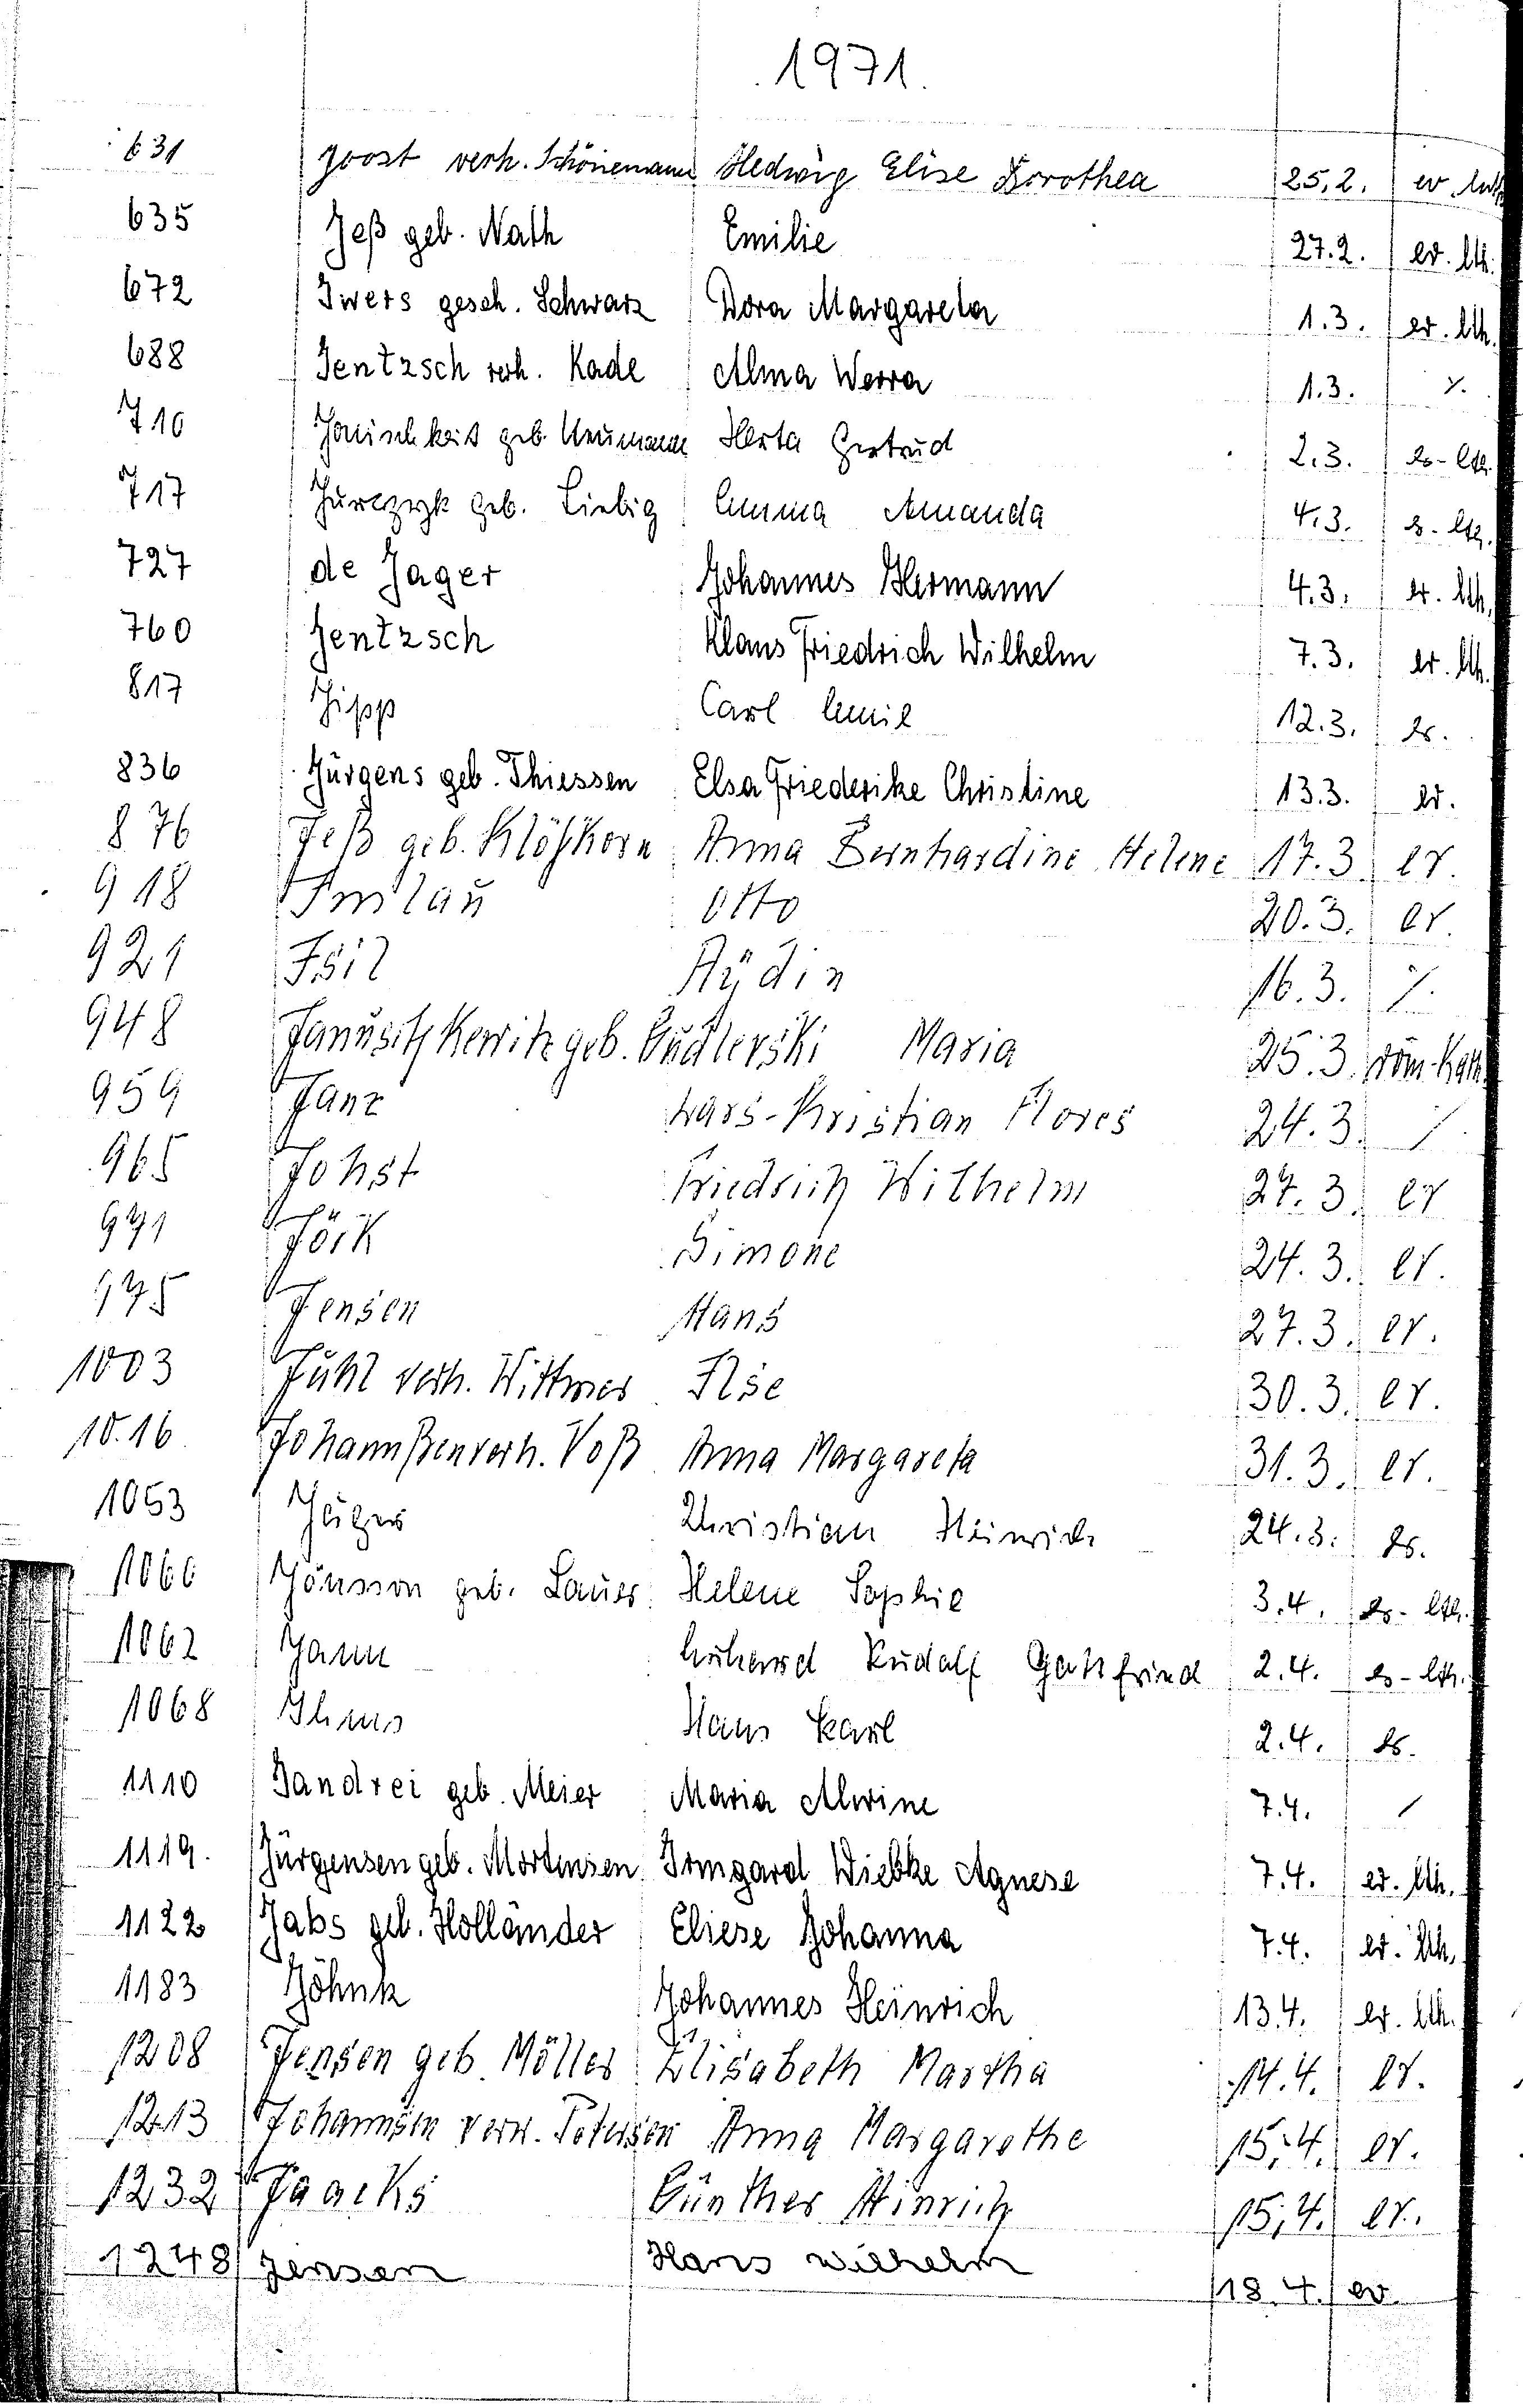 1971.
631 Joost verh. Schönemann Hedwig Elise Dorothea 25.2. ev luth
635 Jeß geb. Nath Emilie 27.2. ev. lth.
672 Iwers gesch. Schwarz Dora Margareta 1.3. ev. lth.
688 Jentzsch verh. Kade Alma Werra 1.3. ⁒
710 Jonischkeit geb. Neumann Herta Gertrud 2.3. ev-lth.
717 Jurczyk geb. Liebig Emma Amanda 4.3. ev-lth.
727 de Jager Johannes Hermann 4.3. ev. lth.
760 Jentzsch Klaus Friedrich Wilhelm 7.3. ev. lth.
817 Jipp Carl Emil 12.3. ev.
836 Jürgens geb. Thiessen Elsa Friederike Christine 13.3. ev.
876 Jeß geb. Klößkorn Anna Bernhardine Helene 17.3. ev.
918 Imlau Otto 20.3. ev.
921 Isil Aydin 16.3. ⁒
948 Januschkewitz geb. Gudlerski Maria 25.3. röm-Kath
959 Janz Lars-Kristian Flores 24.3. /
965 Johst Friedrich Wilhelm 27.3. ev
971 Jörk Simone 24.3. ev.
975 Jensen Hans 27.3. ev.
1003 Juhl verh. Wittmer Ilse 30.3. ev.
10.16 Johannßen verh. Voß Anna Margareta 31.3. ev.
1053 Jäger Christian Heinrich 24.3. ev.
1060 Jönsson geb. Lauer Helene Sophie 3.4. ev-lth.
1062 Jann Rudolf Gottfried 2.4. ev-lth.
1068 Ihms Hans Karl 2.4. ev.
1110 Jandrei geb. Meier Maria Alwine 7.4. /
1119. Jürgensen geb. Mortensen Irmgard Wiebke Agnese 7.4. ev. lth.
1122 Jabs geb. Holländer Eliese Johanna 7.4. ev. lth.
1183 Jöhnk Johannes Heinrich 13.4. ev. lth.
1208 Jensen geb. Möller Elisabeth Martha 14.4. ev.
1213 Johannsen verw. Petersen Anna Margarethe 15.4. ev.
1232 Jaacks Günther Hinrich 15.4. ev.
1248 Jensen Hans Wilhelm 18.4. ev.